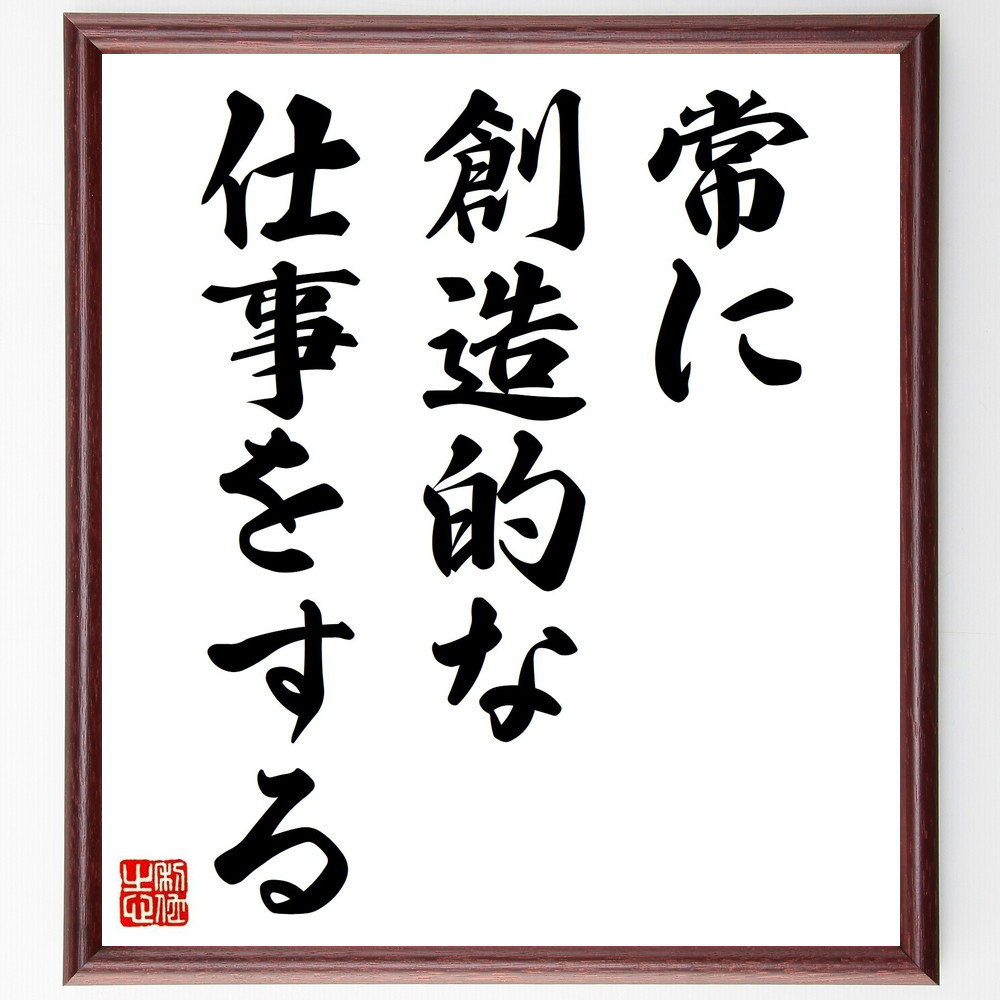 常に
創造的な
仕事をする